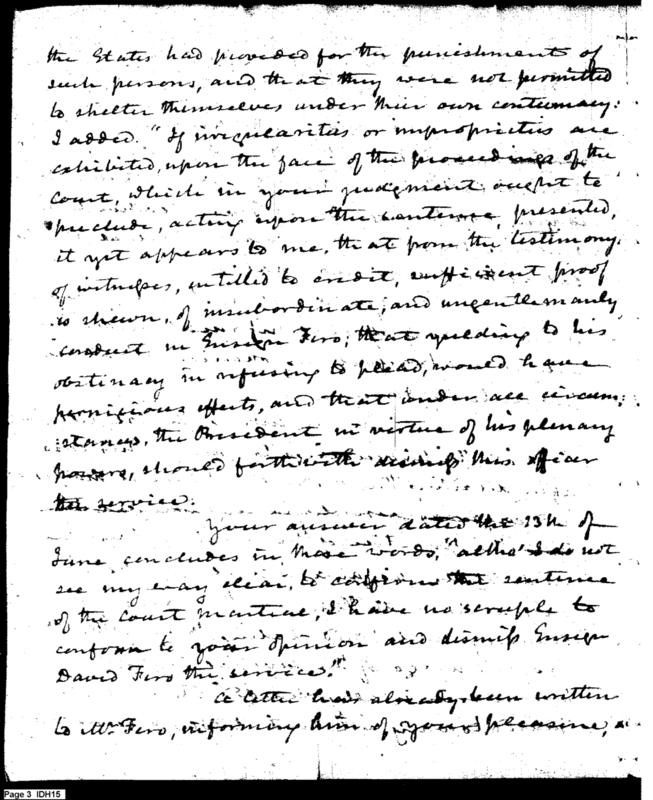 the States had provided for the punishment of
such persons, and that they were not permitted
to shelter themselves under their own contumacy:
I added. "If irregularities or improprieties are
exhibited, upon the face of the proceedings of the
Court, which in your judgment ought to
preclude, acting upon the sentence presented,
it yet appears to me, that from the testimony,
of witnesses, entitled to credit, sufficient proof
is shewn, of insubordinate, and ungentlemanly
conduct in Ensign Fero; that yielding to his
obstinacy in refusing to plead, would have
pernicious effects, and that under all circum:
:stances, the President in virtue of his plenary
powers, should forthwith dismiss this officer
the service.
Your answer dated the 13th of
June concludes in these words, "altho' I do not
see my way clear, to confirm the sentence
of the court martial, I have no scruple to
conform to your opinion and dismiss Ensign
David Fero the service."
A letter has already been written
to Mr. Fero, informing him of your pleasure,
Page 3 IDH15